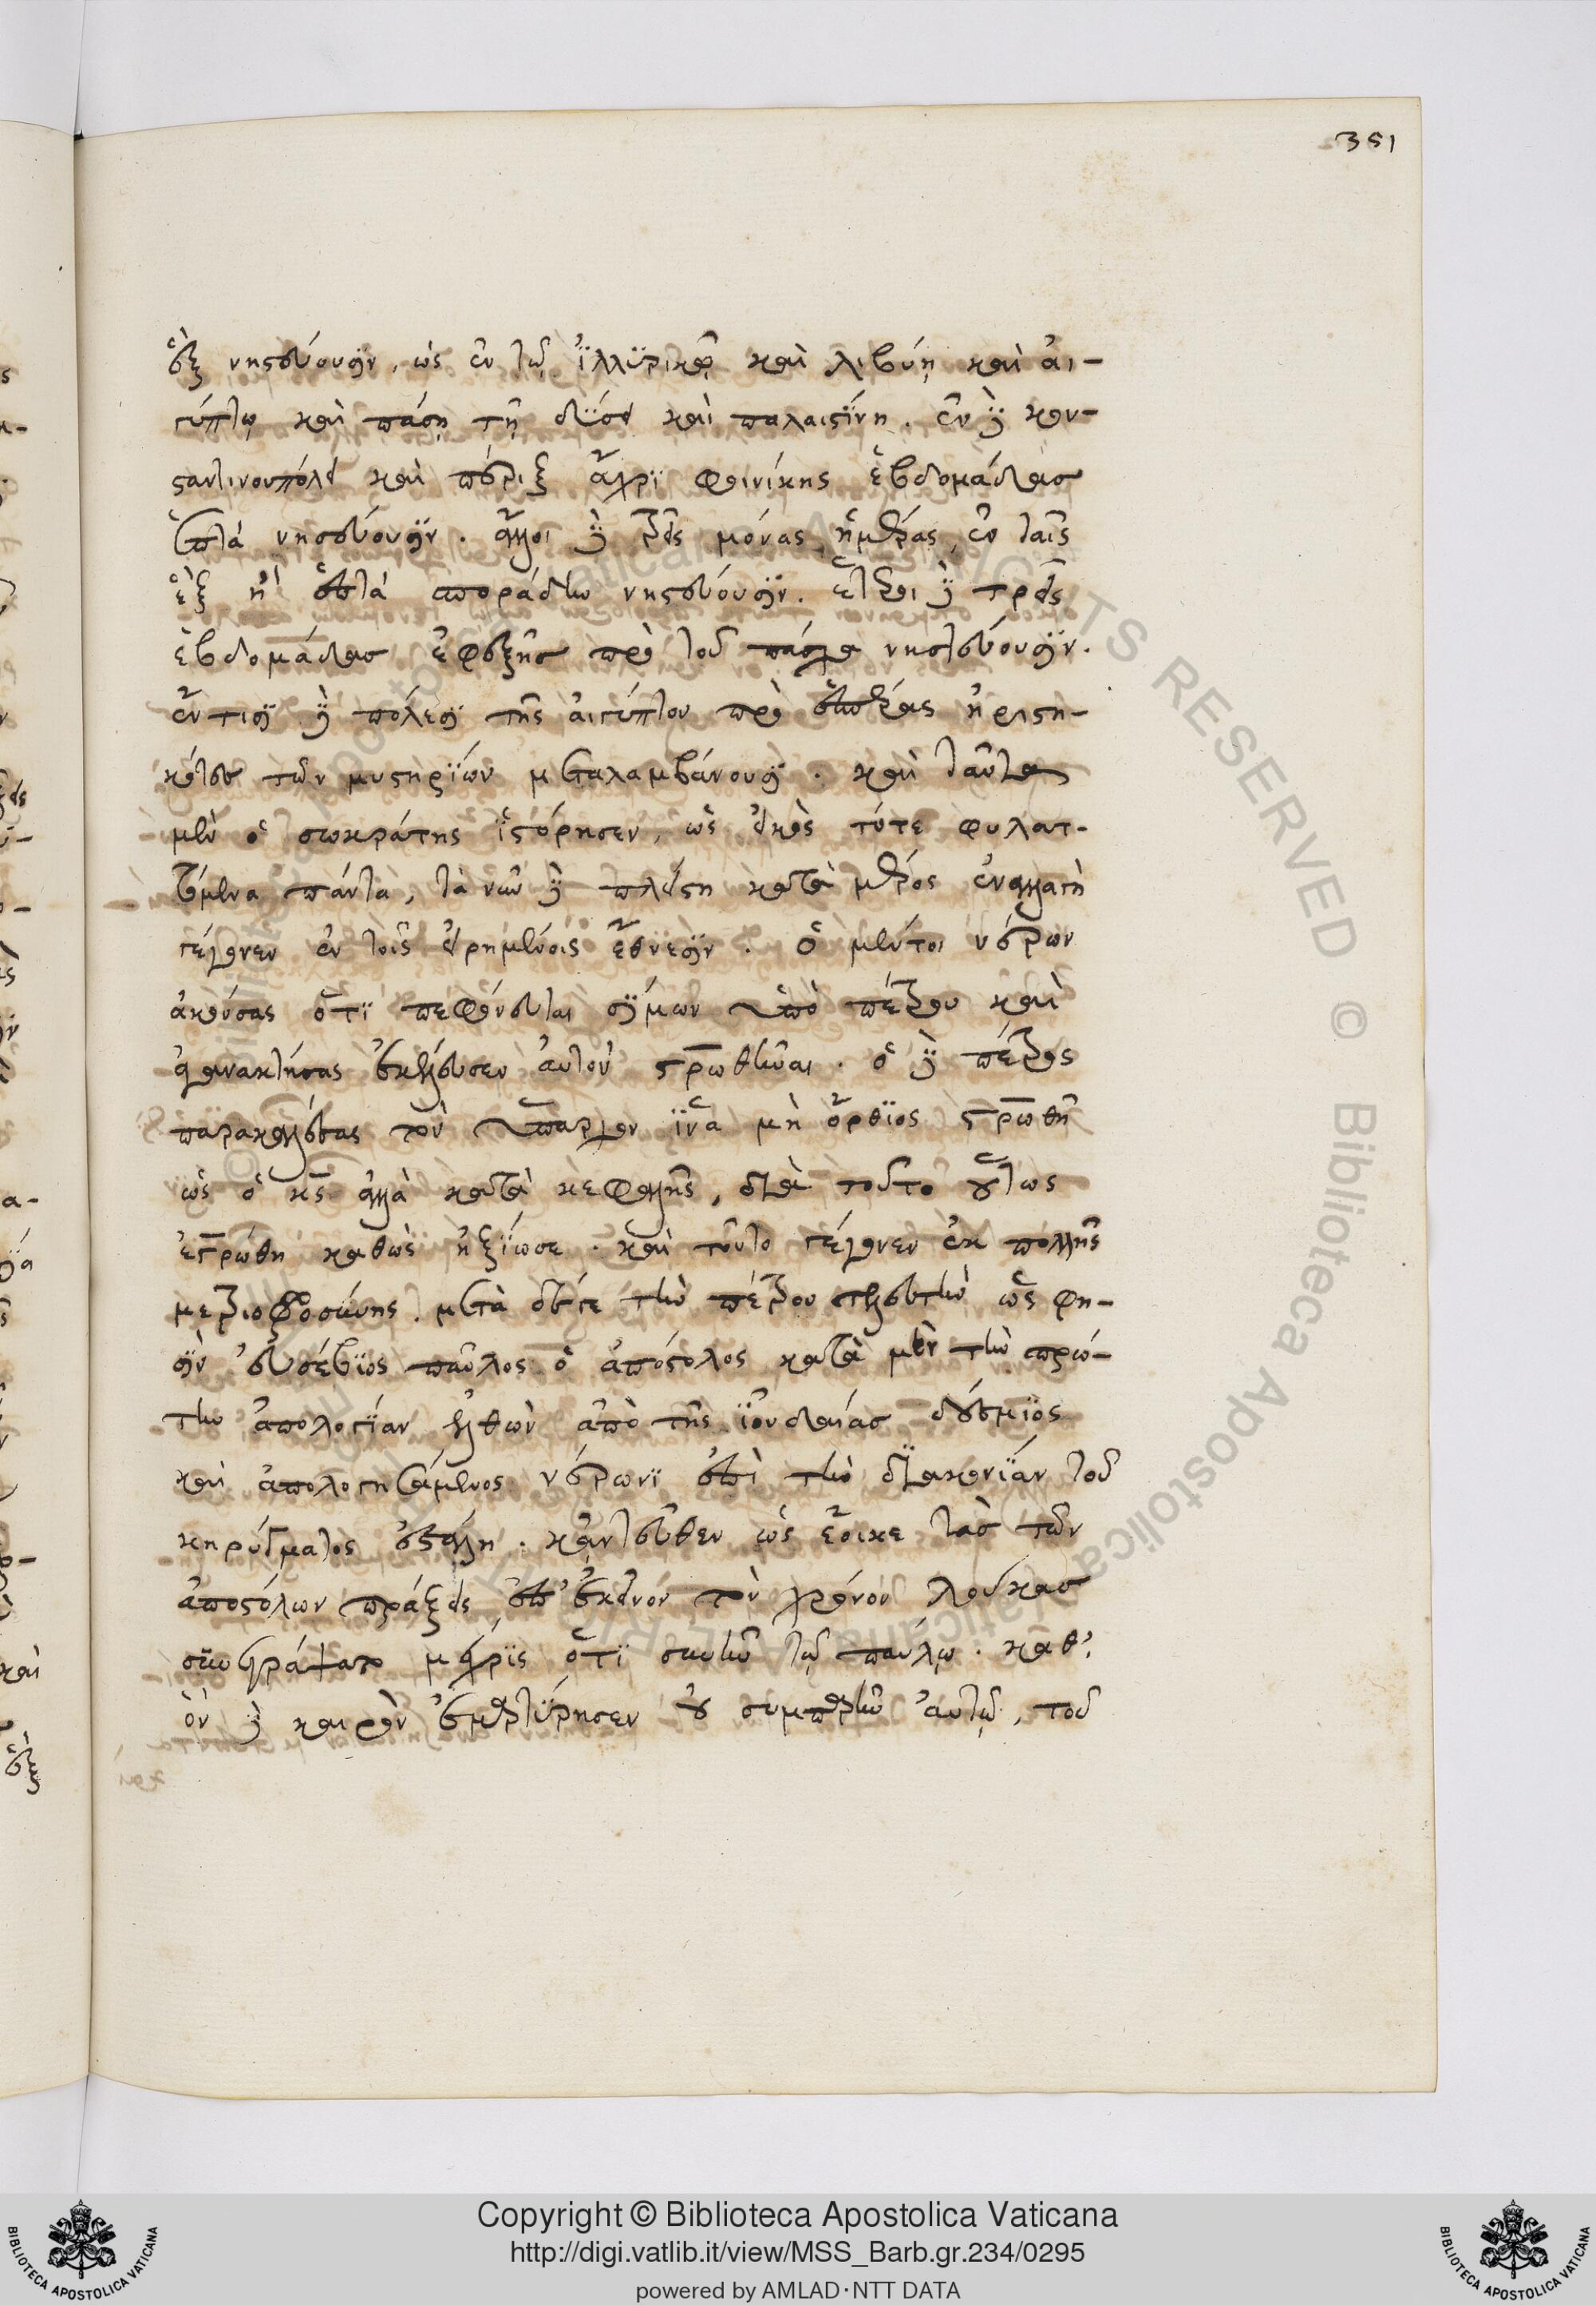 351
ἓξ νηστεύουσιν, ὡς ἐν τῷ ἰλλϋρικῷ καὶ λιβύῃ καὶ ἀι-
γύπτῳ καὶ πάσῃ τῇ δϋσει καὶ παλαιστίνῃ. ἐν δὲ κων-
σταντινουπόλει καὶ πέριξ ἄχρϊ φοινίκης ἑβδομάδας
ἑπτὰ νηστεύουσϊν. ἄλλοι δὲ τρεῖς μόνας ἡμέρας, ἐν ταῖς
ἓξ ἢ ἑπτὰ σποράδην νηστεύουσϊν. ἕτεροι δὲ τρεῖς
ἑβδομάδας ἐφεξῆς πρὸ τοῦ πάσχα νηστεύουσϊν.
ἔν τισϊ δὲ πόλεσϊ τῆς ἀιγύπτου πρὸ ἑσπέρας ἠριστη-
κότες τῶν μυστηρΐων μεταλαμβάνουσϊ. καὶ ταῦτα
μὲν ὁ σωκράτης ἱστόρησεν, ὡς εἰκὸς τότε φυλατ-
τόμενα πάντα, τὰ νῦν δὲ πλείστη κατὰ μέρος ἐναλλαγὴ
γέγονεν ἐν τοῖς εἰρημένοις ἔθνεσϊν. ὁ μέντοι νέρων
ἀκούσας ὅτϊ πεφόνευται σΐμων ὑπὸ πέτρου καὶ
ἀγανακτήσας ἐκέλευσεν ἀυτὸν στρωθῆναι. ὁ δὲ πέτρος
παρακαλέσας τὸν ὕπαρχον ἵνα μὴ ὄρθϊος στρωθῇ
ὡς ὁ κς ἀλλὰ κατὰ κεφαλῆς, διὰ τοῦτο οὕτως
ἐστρώθη καθὼς ἠξΐωσε. καὶ τοῦτο γέγονεν ἐκ πολλῆς
μετριοφροσύνης. μετὰ δέ γε τὴν πέτρου τελευτὴν ὥς φη-
σϊν ἐυσέβϊος παῦλος ὁ ἀπόστολος κατὰ μὲν τὴν πρώ-
την ἀπολογΐαν ἐλθὼν ἀπὸ τῆς ἰουδαίας δέσμϊος
καὶ ἀπολογησάμενος νέρωνϊ ἐπὶ τὴν διακονΐαν τοῦ
κηρύγματος ἐστάλη. κἀντεῦθεν ὡς ἔοικε τὰς τῶν
ἀποστόλων πράξεις ἐπ' ἐκεῖνον τὸν χρόνον λουκᾶς
συνεγράψατο μέχρϊς ὅτϊ συνῆν τῷ παύλῳ. καθ'
ὃν δὲ καιρὸν ἐμαρτΰρησεν οὐ συμπαρῆν ἀυτῷ, τοῦ
Copyright © Biblioteca Apostolica Vaticana
http://digi.vatlib.it/view/MSS_Barb.gr.234/0295
powered by AMLAD·NTT DATA